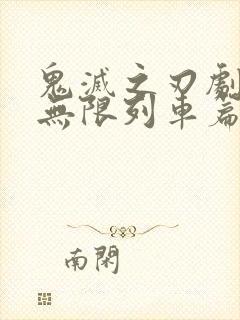 鬼滅之刃劇
無限列車篇
南閑